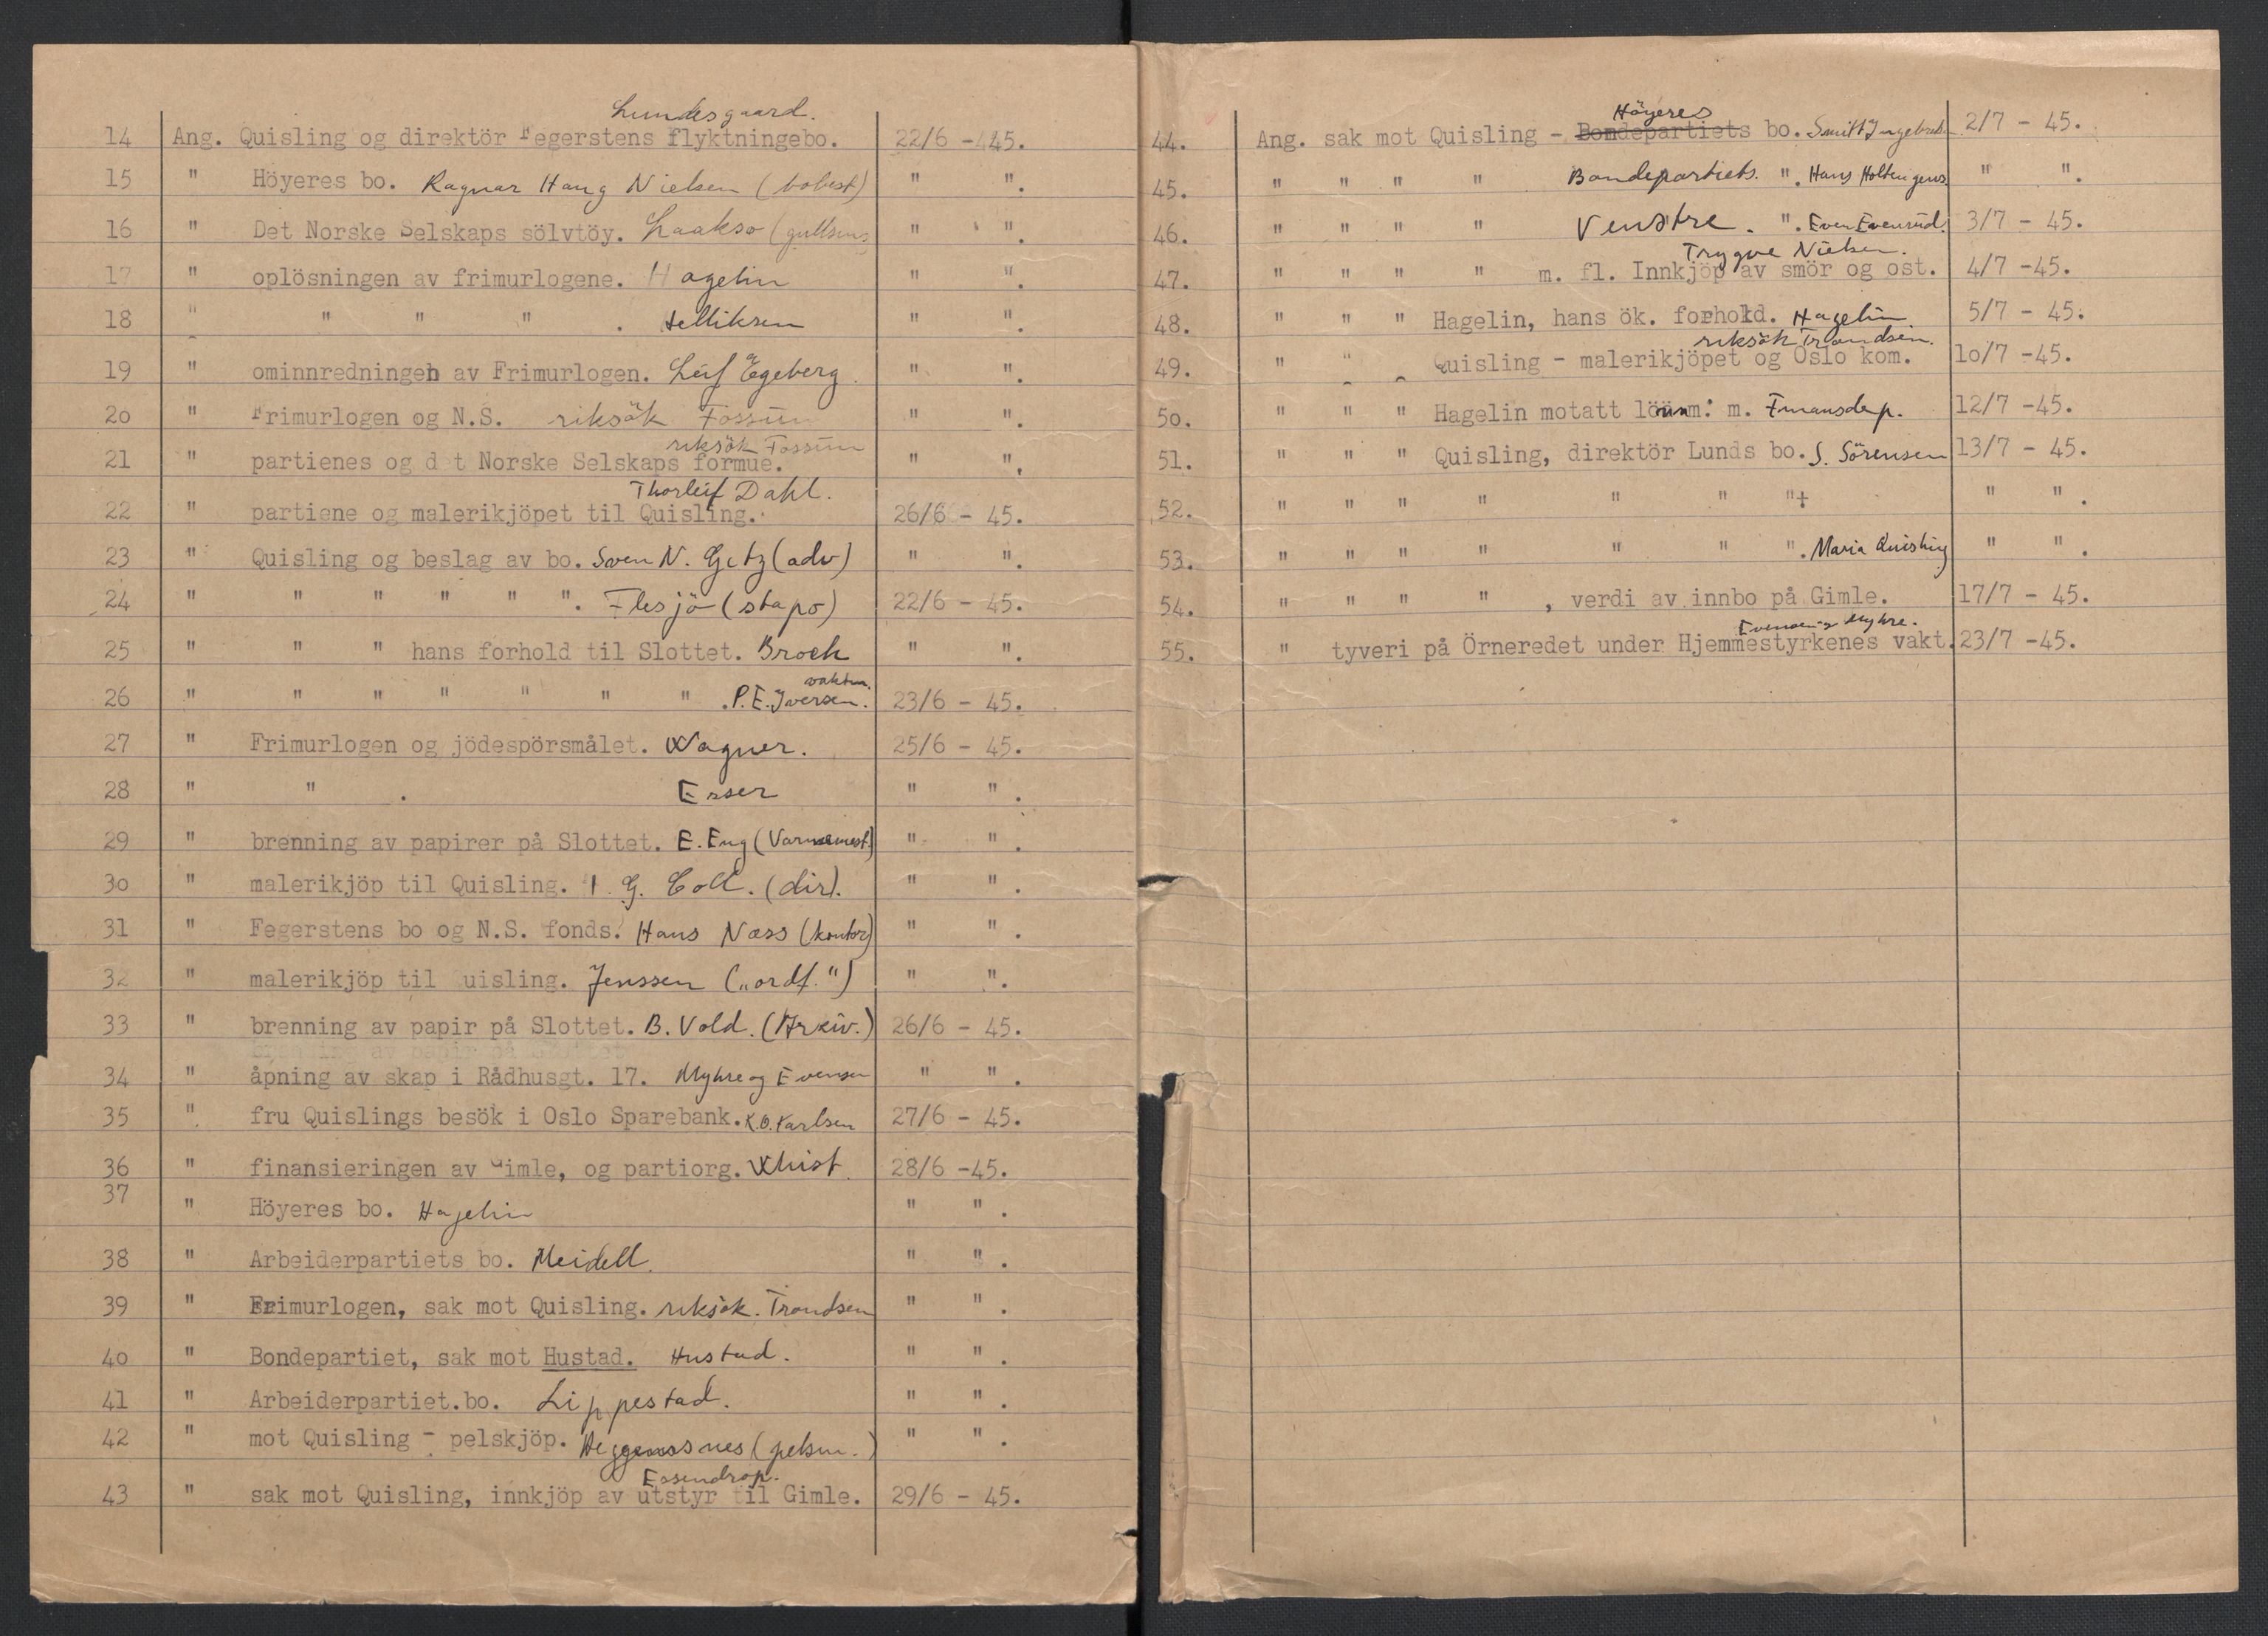 Lundesgaard.
14 Ang. Quisling og direktör Fegerstens flyktningebo. 22/6 - 45.
15 " Höyeres bo. Ragnar Haug Nielsen (bobest) " ".
16 " Det Norske Selskaps sölvtöy. Laakso (gullsm. " ".
17 " oplösningen av frimurlogene. Hagelin " ".
18 " " " " . " ".
19 " ominnredningen av Frimurlogen. Leif Egeberg. " ".
20 " Frimurlogen og N.S. riksök Fossum " ".
riksök Fossum
21 " partienes og d t Norske Selskaps formue. " ".
Thorleif Dahl.
22 " partiene og malerikjöpet til Quisling. 26/6 - 45.
23 " Quisling og beslag av bo. Sven N. Getz (adv) " ".
24 " " " " " ". Flesjö (stapo) 22/6 - 45.
25 " " " hans forhold til Slottet. Broch " ".
vaktm.
26 " " " " " " " .P.E. Iversen. 23/6 - 45.
27 " Frimurlogen og jödespörsmålet. Wagner. 25/6 - 45.
28 " " . Esser " ".
29 " brenning av papirer på Slottet. E. Eng (Varmemest.) " ".
30 " malerikjöp til Quisling. I. G. Coll. (dir). " ".
31 " Fegerstens bo og N.S. fonds. Hans Næss (kontor) " ".
32 " malerikjöp til uisling. Jenssen („ordf.") " ".
33 " brenning av papir på Slottet. B. Vold. (Arkiv.) 26/6 - 45.
34 " åpning av skap i Rådhusgt. 17. Myhre og Evensen " ".
35 " fru Quislings besök i Oslo Sparebank. K.O. Karlsen 27/6 - 45.
36 " finansieringen av Gimle, og partiorg. Whist. 28/6 -45.
37 " Höyeres bo. Hagelin " ".
38 " Arbeiderpartiets bo. Meidell. " ".
39 " Frimurlogen, sak mot Quisling. riksök. Trondsen " ".
40 " Bondepartiet, sak mot Hustad. Hustad. " ".
41 " Arbeiderpartiet.bo. Lippestad. " ".
42 " mot Quisling - pelskjöp. (pelsm.) " ".
Essendrop.
43 " sak mot Quisling, innkjöp av utstyr til Gimle. 29/6 - 45.
Höyeres
44. Ang. sak mot Quisling - Bondepartiets bo. Smitt Ingebretsen 2/7 - 45.
45. " " " " Bondepartiets. ". Hans Holten " ".
46. " " " " Venstre. ". Even Evensrud. 3/7 - 45.
Trygve Nielsen.
47. " " " " m. fl. Innkjöp av smör og ost. 4/7 -45.
48. " " " Hagelin, hans ök. forhold. Hagelin. 5/7 - 45.
riksök Trondsen.
49. " " " Quisling - malerikjöpet og Oslo kom. 10/7 -45.
50. " " " Hagelin motatt lönn m. Finansdep. 12/7 -45.
51. " " " Quisling, direktör Lunds bo. S. Sörensen 13/7 - 45.
52. " " " " " " " " ".
53. " " " " " " ". Maria Quisling " ".
54. " " " " , verdi av innbo på Gimle. 17/7 - 45.
Evensen og Myhre.
55. " tyveri på Örneredet under Hjemmestyrkenes vakt. 23/7 -45.